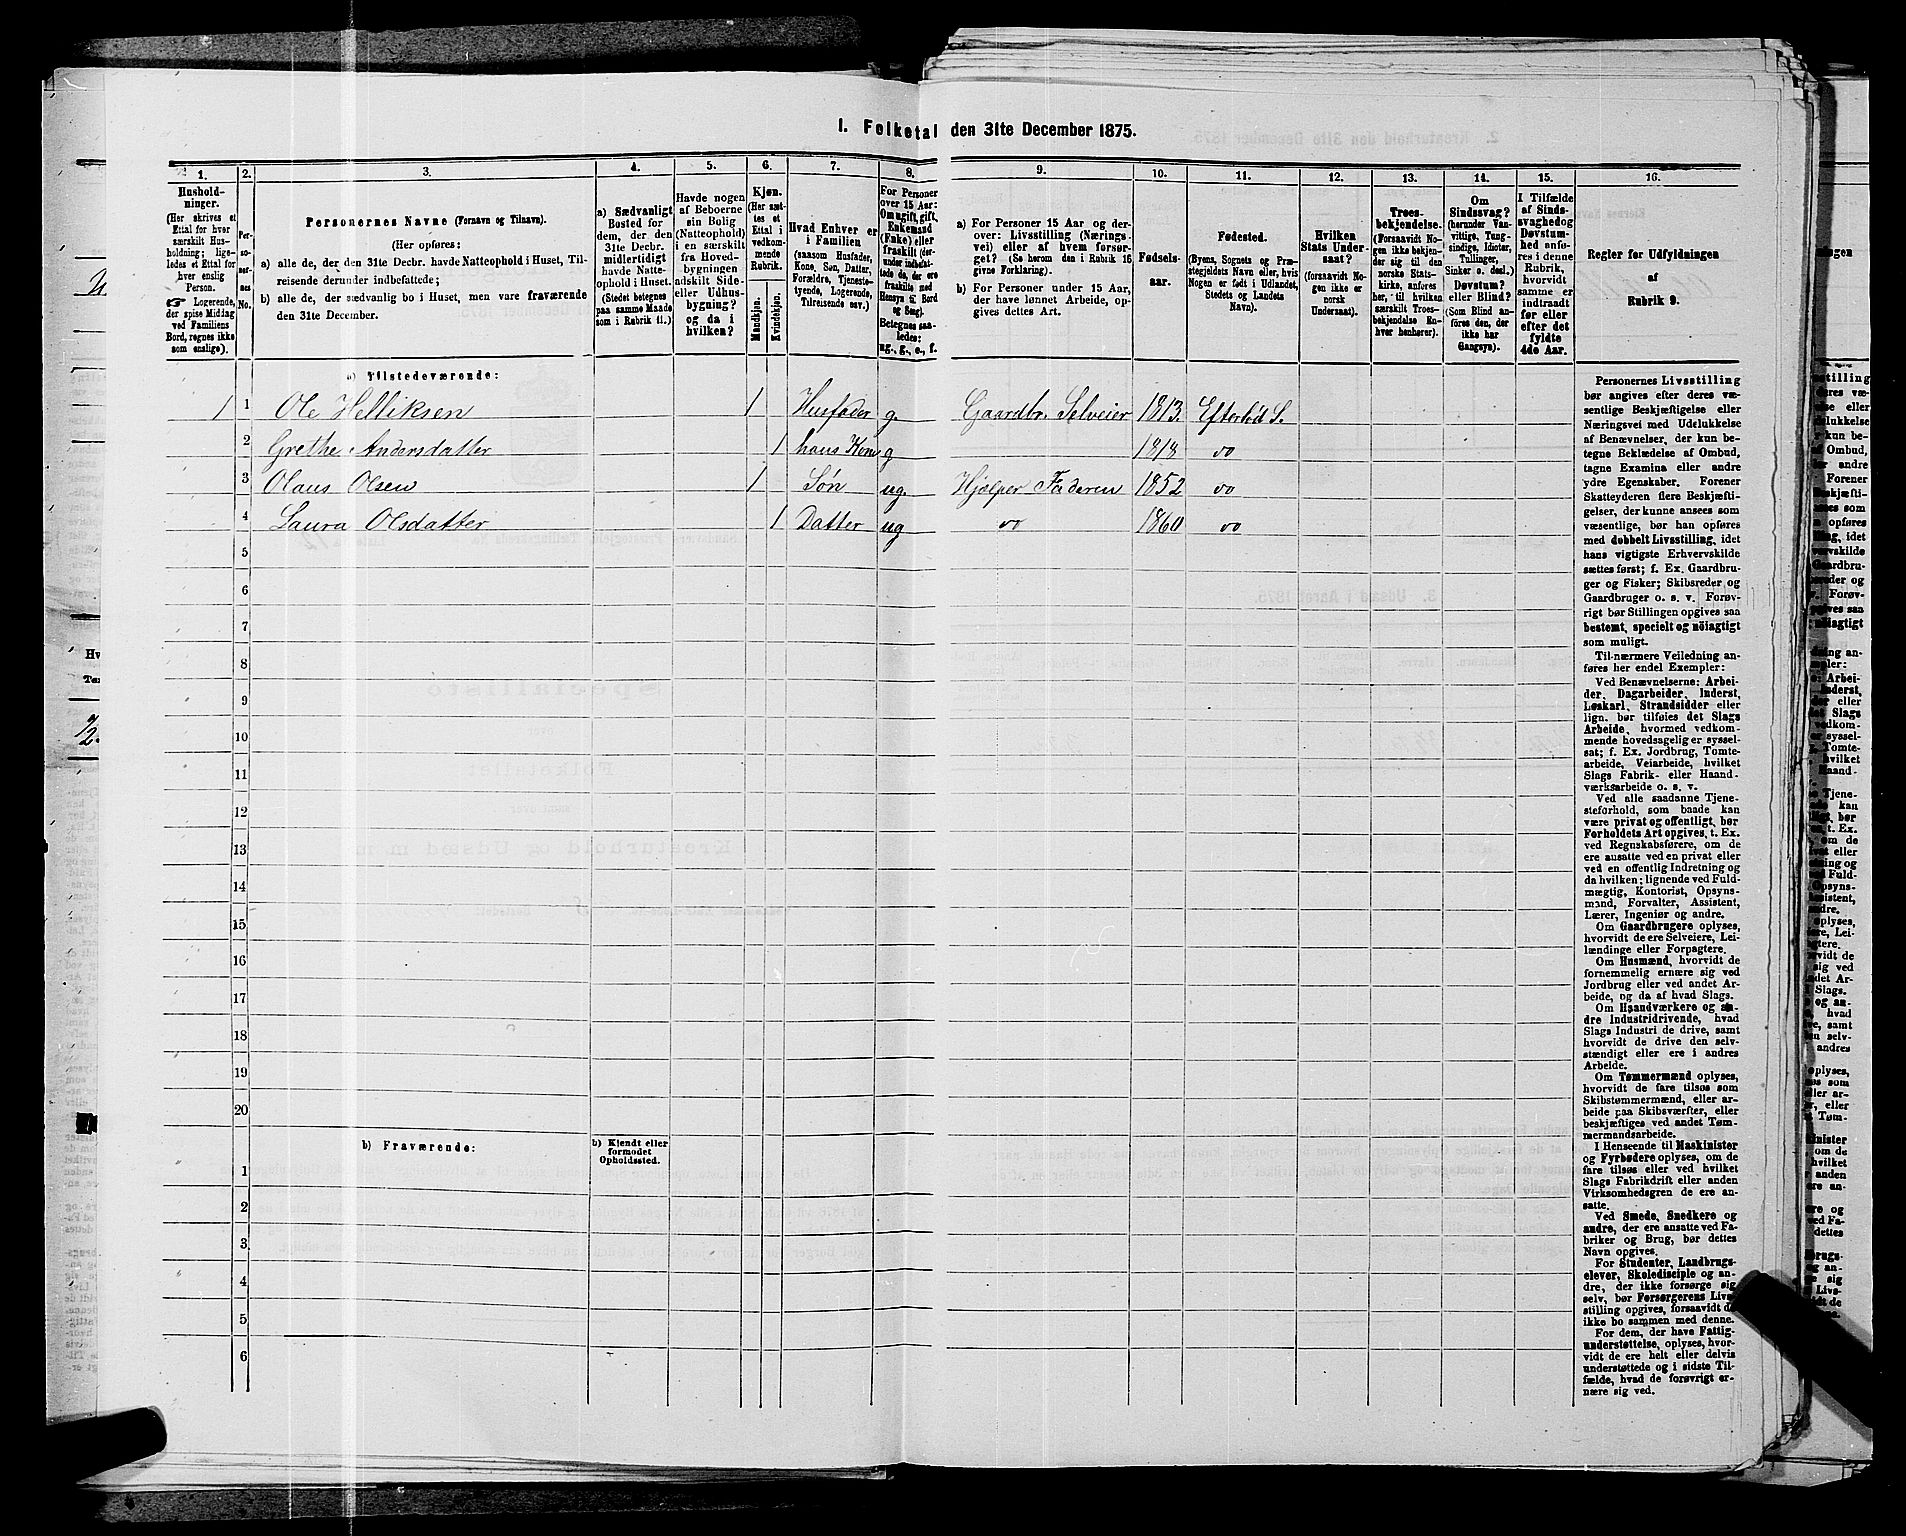 1. Folketal den 31te December 1875.
1. 2. 3. 4. 5. 6. 7. 8. 9. 10. 11. 12. 13. 14. 15. 16.
Hushold-
ninger.
(Her skrives et
Ettal for hver
særskilt Hus-
holdning; lige-
ledes et Ettal for
hver enslig
Person.
☞ Logerende,
der spise Middag
ved Familiens
Bord, regnes ikke
som enslige).
Per-
so-
ner-
nes
No.
Personernes Navne (Fornavn og Tilnavn).
(Her opføres:
a) alle de, der den 31te Decbr. havde Natteophold i Huset, Til-
reisende derunder indbefattede;
b) alle de, der sædvanlig bo i Huset, men vare fraværende
den 31te December.
a) Sædvanligt
Bosted for
dem, der den
31te Decbr.
midlertidigt
havde Natte-
ophold i Huset.
(Stedet betegnes
paa samme Maade
som i Rubrik 11.)
Havde nogen
af Beboerne
sin Bolig
(Natteophold)
i en særskilt
fra Hoved-
bygningen
adskilt Side-
eller Udhus-
bygning?
og da i
hvilken?
Kjøn.
(Her sæt-
tes et
Ettal i
vedkom-
mende
Rubrik.
Mandkjøn.
Kvindekjøn.
Hvad Enhver er
i Familien
(saasom Husfader,
Kone, Søn, Datter,
Forældre, Tjeneste-
tyende, Logerende,
Tilreisende osv.)
For Personer
over 15 Aar:
Om ugift, gift,
Enkemand
(Enke) eller
fraskilt (der-
under indbefat-
tede de, der ere
fraskilte med
Hensyn til Bord
og Seng).
Betegnes saa-
ledes:
ug., g., e., f.
a) For Personer 15 Aar og der-
over: Livsstilling (Nærings-
vei) eller af hvem forsør-
get? (Se herom den i Rubrik 16
givne Forklaring).
b) For Personer under 15 Aar,
der have lønnet Arbeide, op-
gives dettes Art.
Fødsels-
aar.
Fødested.
(Byens, Sognets og Præ-
stegjeldets Navn eller, hvis
Nogen er født i Udlandet,
Stedets og Landets
Navn).
Hvilken
Stats Under-
saat?
(forsaavidt No-
gen ikke er
norsk
Undersaat).
Troes-
bekjendelse.
(Forsaavidt No-
gen ikke bekjen-
der sig til den
norske Stats-
kirke, anføres
her, til hvilken
særskilt Troes-
bekjendelse En-
hver henhører).
Om
Sindssvag?
(herunder Van-
vittige, Tung-
sindige, Idioter,
Tullinger,
Sinker o. desl.)
Døvstum?
eller Blind?
(Som Blind an-
føres den, der
ikke har
Gangsyn).
I Tilfælde
af Sinds-
svaghed og
Døvstum-
hed anfø-
res i denne
Rubrik,
hvorvidt
samme er
indtraadt
før eller
efter det
fyldte
4de Aar.
Regler for Udfyldningen
af
Rubrik 9.
a) Tilstedeværende:
1 1 Ole Helliksen 1 Husfader g. Gaardbr. Selveier 1813. Efterlød S.
2 Grethe Andersdatter 1 hans Kone g 1818 do
3 Olaus Olsen 1 Søn ug. Hjælper Faderen 1852 do
4 Laura Olsdatter 1 Datter ug do 1860 do
5
6
7
8
9
10
11
12
13
14
15
16
17
18
19
20
b) Fraværende:
b) Kjendt eller
formodet
Opholdssted.
1
2
3
4
5
6
Personernes Livsstilling
bør angives efter deres væ-
sentlige Beskjæftigelse eller
Næringsvei med Udelukkelse
af Benævnelser, der kun be-
tegne Beklædelse af Ombud,
tagne Examina eller andre
ydre Egenskaber. Forener
Skatteyderen flere Beskjæfti-
gelser, der kunne ansees som
væsentlige, bør han opføres
med dobbelt Livsstilling, idet
hans vigtigste Erhvervskilde
sættes først; f. Ex. Gaardbru-
ger og Fisker; Skibsreder og
Gaardbruger o. s. v. Forøv-
rigt bør Stillingen opgives saa
bestemt, specielt og nöiagtigt
som muligt.
Til nærmere Veiledning an-
føres her endel Exempler:
Ved Benævnelserne: Arbei-
der, Dagarbeider, Inderst,
Løskarl, Strandsidder eller
lign. bør tilføies det Slags
Arbeide, hvormed vedkom-
mende hovedsagelig er syssel-
sat; f. Ex. Jordbrug, Tomte-
arbeide, Veiarbeide, hvilket
Slags Fabrik- eller Haand-
værksarbeide o. s. v.
Ved alle saadanne Tjene-
steforhold, som baade kan
være privat og offentligt, bør
Forholdets Art opgives, t. Ex.
ved Regnskabsførere, om de
ere ansatte ved en privat eller
ved en offentlig Indretning og
da hvilken; lignende ved Fuld-
mægtig, Kontorist, Opsyns-
mand, Forvalter, Assistent,
Lærer, Ingeniør og andre.
Om Gaardbrugere oplyses,
hvorvidt de ere Selveiere, Lei-
lændinge eller Forpagtere.
Om Husmænd, hvorvidt de
fornemmelig ernære sig ved
Jordbrug eller ved andet Ar-
beide, og da af hvad Slags.
Om Haandværkere og an-
dre Industridrivende, hvad
Slags Industri de drive, samt
hvorvidt de drive den selv-
stændigt eller ere i andres
Arbeide.
Om Tømmermænd oplyses,
hvorvidt de fare tilsøs som
Skibstømmermænd, eller ar-
beide paa Skibsværfter, eller
beskjæftiges ved andet Tøm-
mermandsarbeide.
I Henseende til Maskinister
og Fyrbødere oplyses, om de
fare tilsøs eller ved hvilket
Slags Fabrikdrift eller anden
Virksomhedsgren de ere an-
satte.
Ved Smede, Snedkere og
andre, der ere ansatte ved Fa-
briker og Brug, bør dettes
Navn opgives.
For Studenter, Landbrugs-
elever, Skoledisciple og an-
dre, der ikke forsørge sig
selv, bør Forsørgerens Livs-
stilling opgives, forsaavidt de
ikke bo sammen med denne.
For dem, der have Fattig-
understøttelse, oplyses, hvor-
vidt de ere helt eller delvis
understøttede og i sidste Til-
fælde, hvad de forøvrigt er-
nære sig ved.